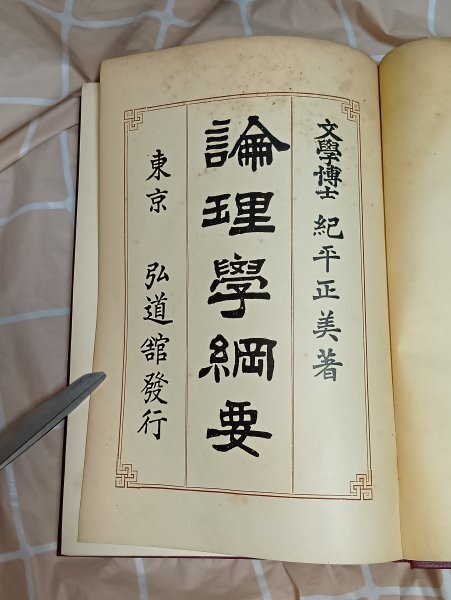 文學博士 紀平正美著
論理學綱要
東京 弘道舘發行